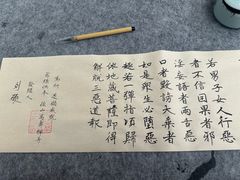 若男子女人行惡
者不信因果者邪
淫妄語者兩舌惡
口者毀謗大乘者
如是眾生必墮惡
趣若一彈指頃歸
依地藏菩薩即得
解脫三惡道報